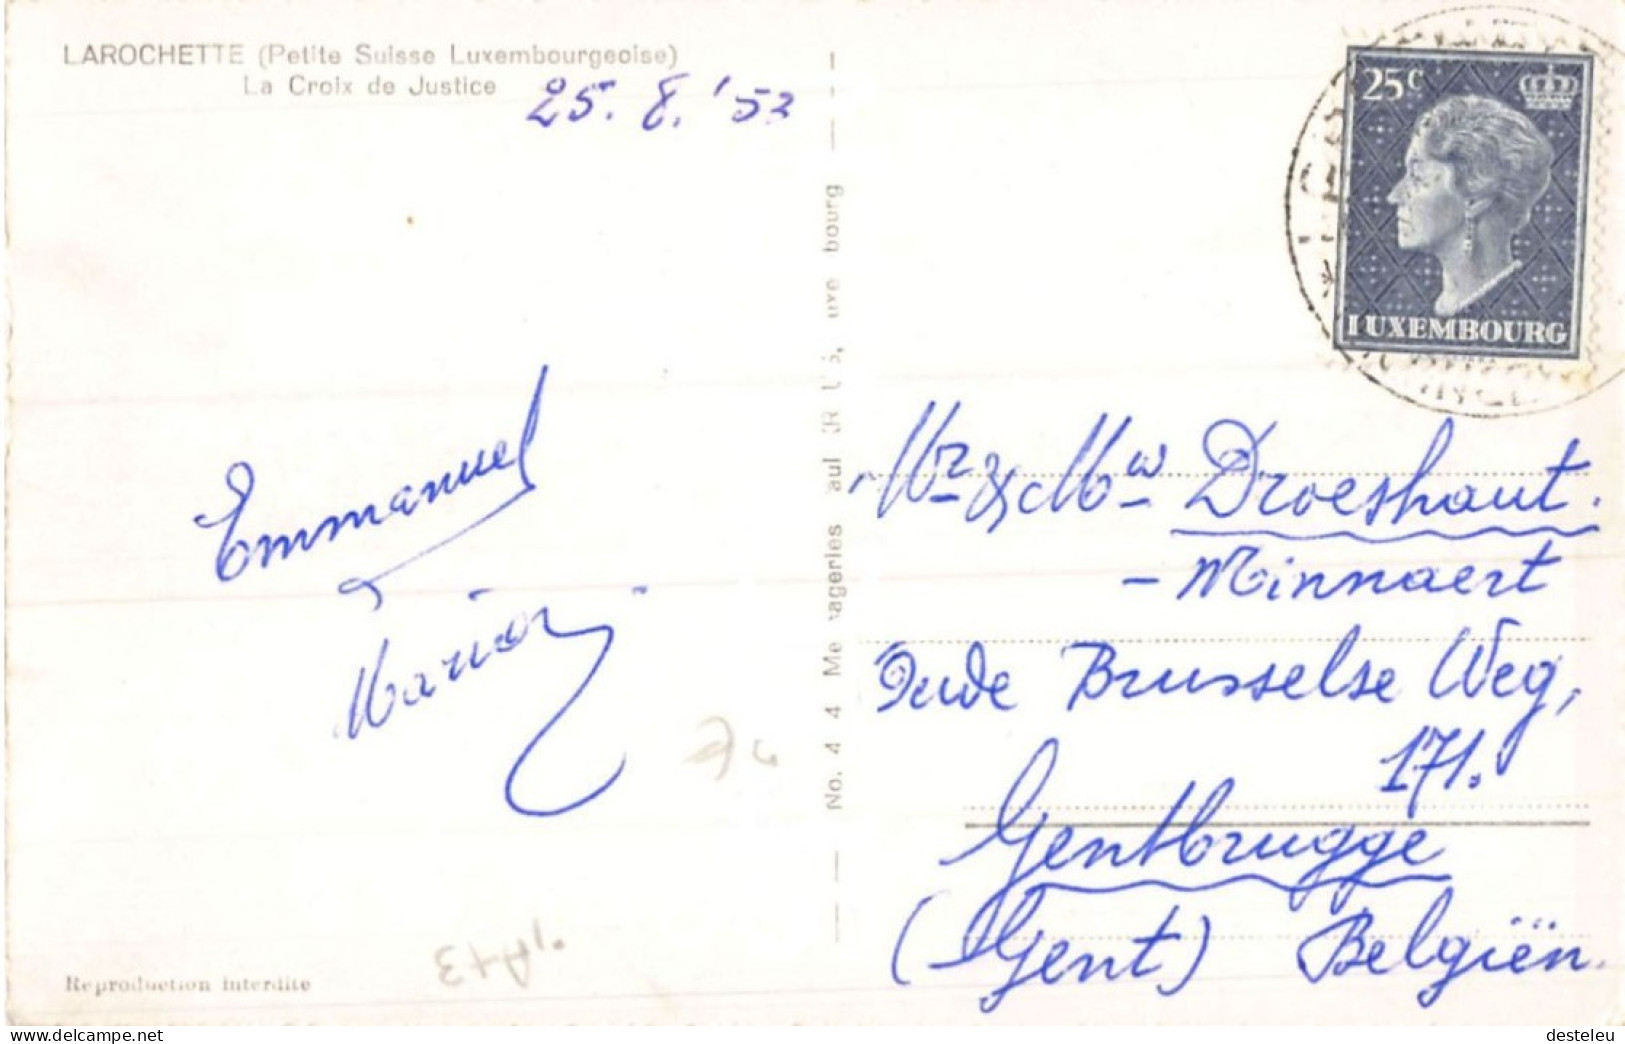 LAROCHETTE (Petite Suisse Luxembourgeoise)
La Croix de Justice
25. 8. '52
25c
LUXEMBOURG
Emmanuel
Marion
No. 4 4 Me ageries aul KR US, uxe bourg
Mr & Mw Droeshaut.
- Minnaert
Oude Brusselse Weg,
171.
Gentbrugge
(Gent) Belgiën.
Reproduction interdite
www.delcampe.net
desteleu